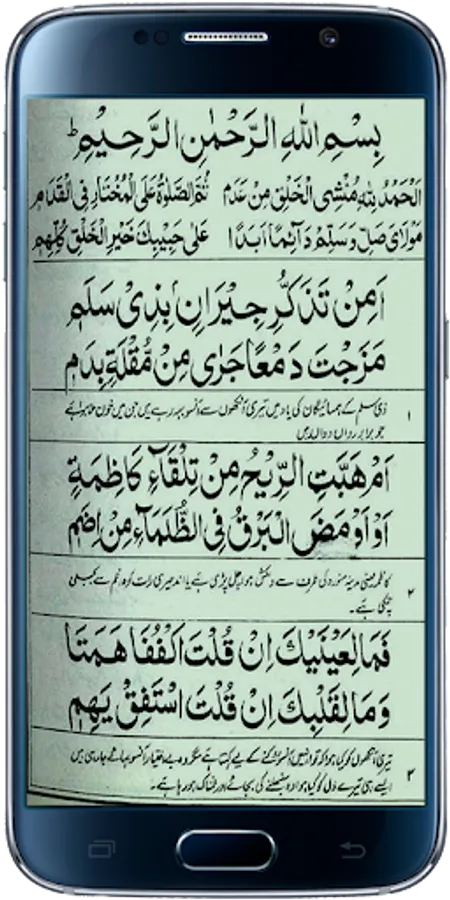 بِسْمِ اللهِ الرَّحْمٰنِ الرَّحِيْمِ ؕ
اَلْحَمْدُ لِلّٰهِ مُنْشِی الْخَلْقِ مِنْ عَدَمٖ ثُمَّ الصَّلٰوةُ عَلَی الْمُخْتَارِ فِی الْقِدَمٖ
مَوْلَایَ صَلِّ وَسَلِّمْ دَآئِمًا اَبَدًا عَلٰی حَبِيْبِكَ خَيْرِ الْخَلْقِ كُلِّهِمٖ
اَمِنْ تَذَكُّرِ جِيْرَانٍ بِذِیْ سَلَمٖ
مَزَجْتَ دَمْعًا جَرٰی مِنْ مُّقْلَةٍ بِدَمٖ
۱ ذی سلم کے ہمسائیگان کی یاد میں تیری آنکھوں سے آنسو بہہ رہے ہیں جن میں خون ملا ہوا ہے
جو برابر رواں دواں ہیں
اَمْ هَبَّتِ الرِّيْحُ مِنْ تِلْقَآءِ كَاظِمَةٍ
اَوْ اَوْمَضَ الْبَرْقُ فِی الظُّلَمَآءِ مِنْ اِضَمٖ
۲ کاظمہ یعنی مدینہ منورہ کی طرف سے ہوا چل پڑی ہے یا اندھیری رات کوہ اضم سے بجلی
چمکی ہے۔
فَمَا لِعَيْنَيْكَ اِنْ قُلْتَ اكْفُفَا هَمَتَا
وَمَا لِقَلْبِكَ اِنْ قُلْتَ اسْتَفِقْ يَهِمٖ
۳ تیری آنکھوں کو کیا ہوا کہ تو انہیں آنسو روکنے کے لیے کہتا ہے مگر وہ بے اختیار آنسو بہائے جا رہی ہیں
ایسے ہی تیرے دل کو کیا ہوا وہ سنبھلنے کی بجائے اور غمناک ہو رہا ہے۔